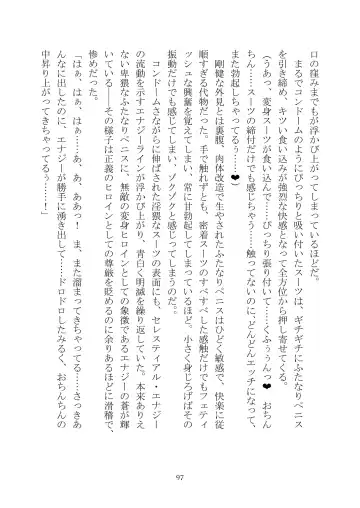 ロの窪みまでもが浮かび上がってしまっているほどだ。
まるでコンドームのようにぴっちりと吸い付いたスーツは、ギチギチにふたなりペニス
を引き締め、キツい食い込みが強烈な快感となって全方位から押し寄せてくる。
（うあっ、変身スーツが食い込んで……ぴっちり張り付いて……くふぅぅんっ❤ おちん
ちん……スーツの締付だけでも感じちゃう……触ってないのに、どんどんエッチになって、
また勃起しちゃってるぅ……❤）
剛健な外見とは裏腹、肉体改造で生やされたふたなりペニスはひどく敏感で、快楽に従
順すぎる代物だった。手で触れずとも、密着スーツのすべすべした感触だけでもフェティ
ッシュな興奮を覚えてしまい、常に甘勃起してしまっているほど。小さく身じろげばその
振動だけでも感じてしまい、ゾクゾクと感じってしまうのだ。
コンドームさながらに伸ばされた淫猥なスーツの表面にも、セレスティアル・エナジー
の流動を示すエナジーラインが浮かび上がり、青白く明滅を繰り返していた。本来ありえ
ない卑猥なふたなりペニスに、無敵の変身ヒロインとしての象徴であるエナジーの蒼が輝
いている――その様子は正義のヒロインとしての尊厳を貶めるのに余りあるほどに滑稽で、
惨めだった。
「はぁ、はぁ、はぁ……あ、あ、ああっ！　ま、また溜まってきちゃってる……さっきあ
んなに出したのに、エナジーが勝手に湧き出して……ドロドロしたみるく、おちんちんの
中昇り上がってきちゃってるぅ……！」
97